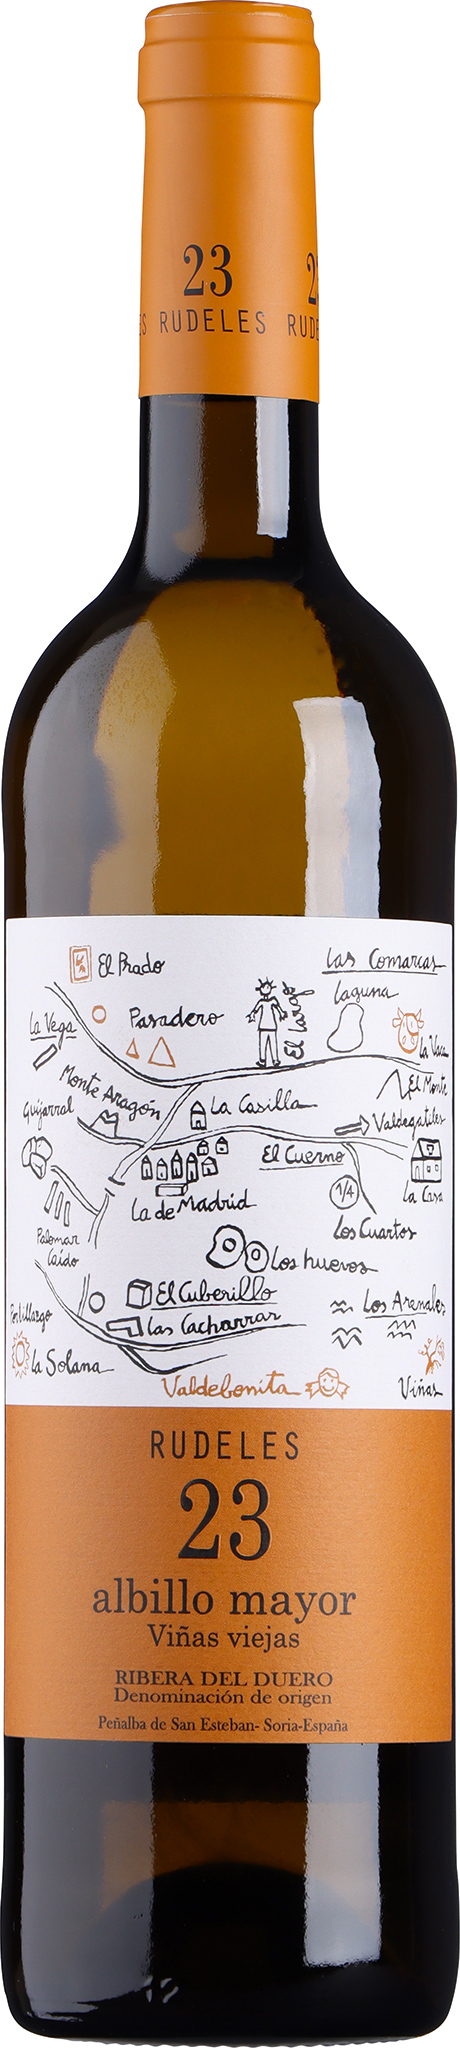 23
23
ES RUDELES RUDE
El Prado
Las Comarcas
La Vega
Pasadero
El Largo
Laguna
La Vaca
Monte Aragón
El Monte
Guijarral
La Casilla
Valdegatiles
El Cuerno
La Casa
La de Madrid
1/4
Palomar
Caído
Los Cuartos
Los huevos
El Cuberillo
Portillargo
Las Cacharras
Los Arenales
La Solana
Valdebonita
Viñas
RUDELES
23
albillo mayor
Viñas viejas
RIBERA DEL DUERO
Denominación de origen
Peñalba de San Esteban- Soria-España